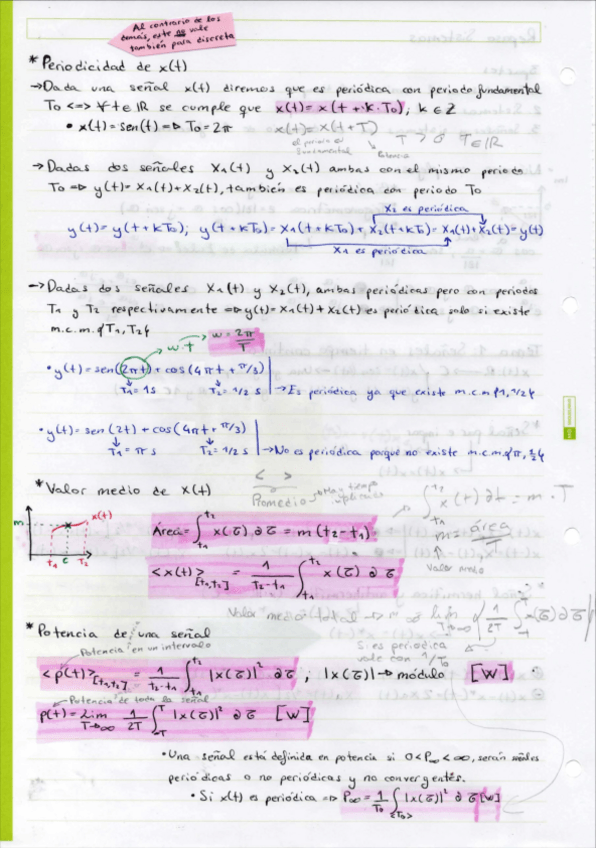 Al contrario de los
demás, este no vale
también para discreta
* Periodicidad de x(t)
→ Dada una señal x(t) diremos que es periódica con periodo fundamental
To <=> ∀ t ∈ ℝ se cumple que x(t) = x(t + k·To); k ∈ Z
• x(t) = sen(t) => To = 2π x(t) = x(t+T) T > 0 T ∈ ℝ
el periodo es
fundamental
→ Dadas dos señales X1(t) y X2(t) ambas con el mismo periodo
To => y(t) = X1(t) + X2(t), también es periódica con periodo To
X2 es periódica
y(t) = y(t + kTo); y(t + kTo) = X1(t + kTo) + X2(t + kTo) = X1(t) + X2(t) = y(t)
X1 es periódica
→ Dadas dos señales X1(t) y X2(t), ambas periódicas pero con periodos
T1 y T2 respectivamente => y(t) = X1(t) + X2(t) es periódica solo si existe
m.c.m.{T1, T2}
w·t w = 2π/T
• y(t) = sen(2πt) + cos(4πt + π/3)
T1 = 1 s T2 = 1/2 s → Es periódica ya que existe m.c.m {1, 1/2}
• y(t) = sen(2t) + cos(4πt + π/3)
T1 = π s T2 = 1/2 s → No es periódica porque no existe m.c.m.{π, 1/2}
* Valor medio de X(t)
< >
Promedio
∫_{t1}^{t2} x(t) ∂t = m · T
m x(t)
t1 c T2
Área = ∫_{t1}^{t2} x(τ) ∂τ = m (t2 - t1)
m = área/T
Valor medio
<x(t)>_[t1,t2] = 1/(t2-t1) ∫_{t1}^{t2} x(τ) ∂τ
Valor medio total → m∞ = lim_{T→∞} 1/2T ∫_{-T}^{T} x(τ) ∂τ
Si es periódica
vale con 1/To
* Potencia de una señal
Potencia en un intervalo
<p(t)>_[t1,t2] = 1/(t2-t1) ∫_{t1}^{t2} |x(τ)|² ∂τ ; |x(τ)| → módulo [W]
Potencia de toda la señal
p(t) = Lim_{T→∞} 1/2T ∫_{-T}^{T} |x(τ)|² ∂τ [W]
• Una señal está definida en potencia si 0 < P∞ < ∞, serán señales
periódicas o no periódicas y no convergentes.
• Si x(t) es periódica => P∞ = 1/To ∫_{<To>} |x(τ)|² ∂τ [W]